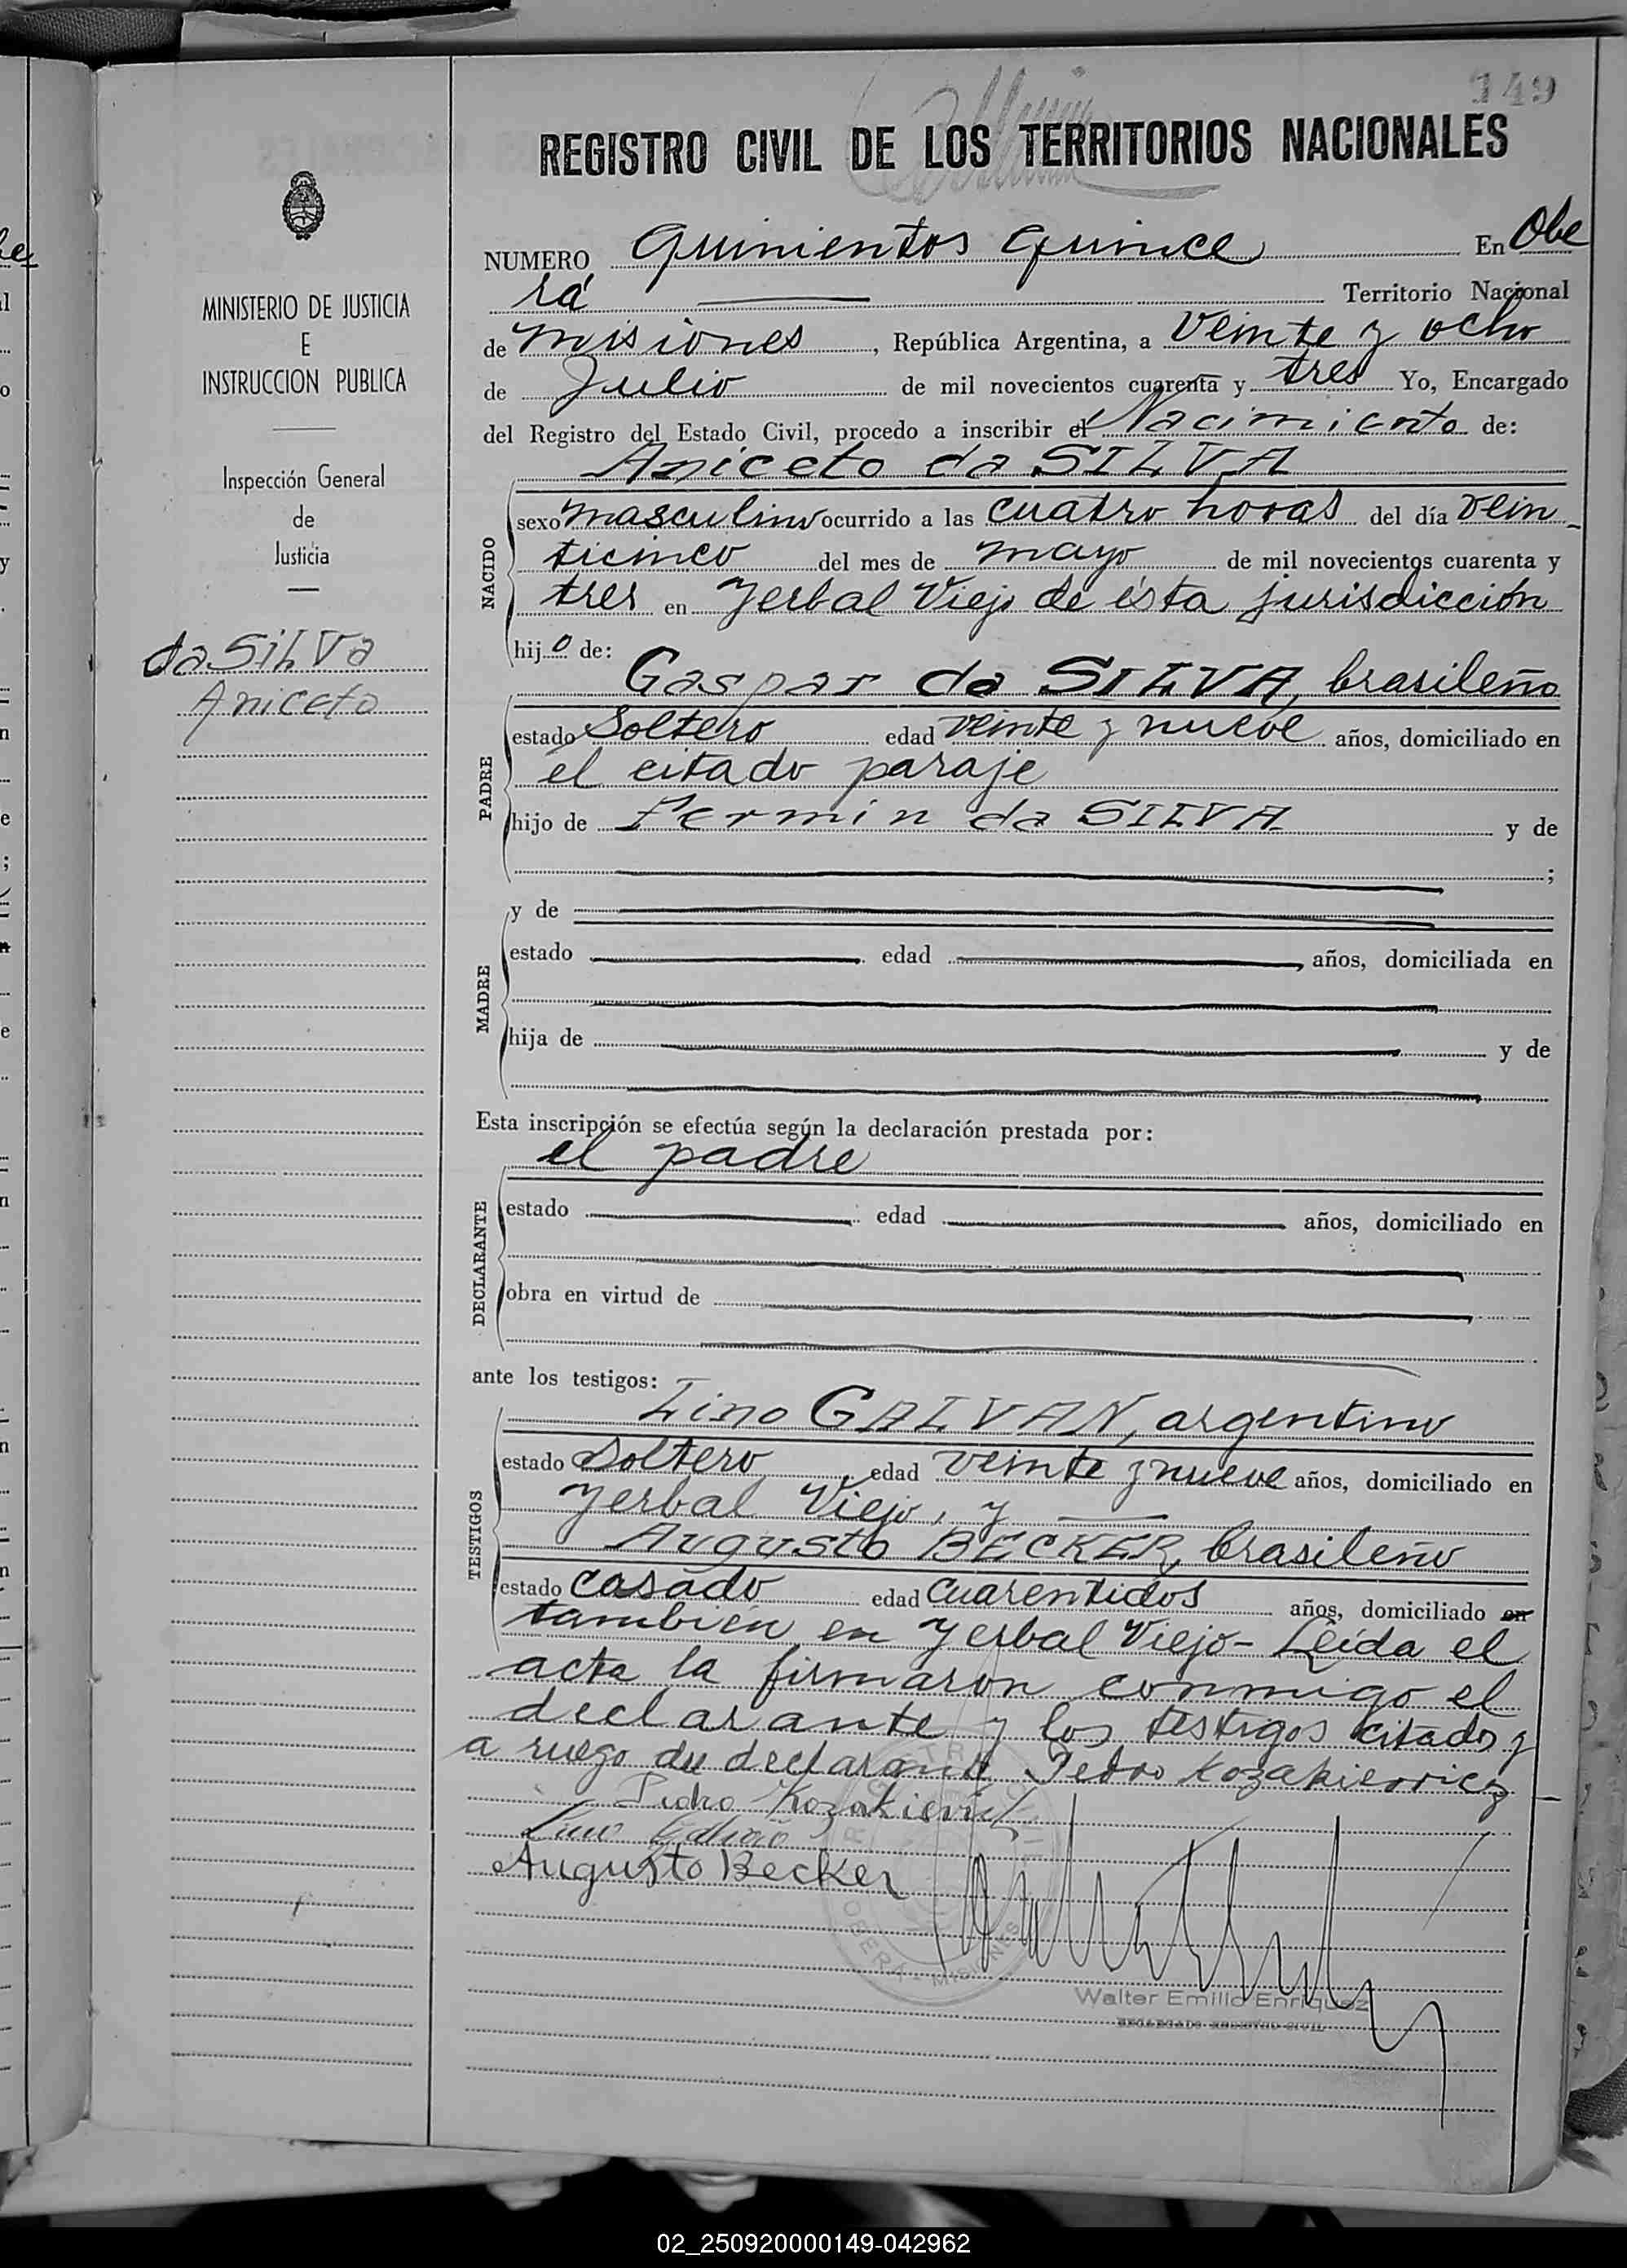 149
REGISTRO CIVIL DE LOS TERRITORIOS NACIONALES
MINISTERIO DE JUSTICIA
E
INSTRUCCION PUBLICA
Inspección General
de
Justicia
da SILVa
Aniceto
NUMERO Quinientos quince En Obe
rá Territorio Nacional
de Misiones, República Argentina, a veinte y ocho
de Julio de mil novecientos cuarenta y tres Yo, Encargado
del Registro del Estado Civil, procedo a inscribir el Nacimiento de:
Aniceto da SILVA
NACIDO
sexo masculino ocurrido a las cuatro horas del día vein
ticinco del mes de mayo de mil novecientos cuarenta y
tres en Yerbal Viejo de ésta jurisdicción
hijo de:
Gaspar da SILVA, brasileño
PADRE
estado Soltero edad veinte y nueve años, domiciliado en
el citado paraje
hijo de Fermin da SILVA y de
;
MADRE
y de
estado edad años, domiciliada en
hija de y de
Esta inscripción se efectúa según la declaración prestada por:
el padre
DECLARANTE
estado edad años, domiciliado en
obra en virtud de
ante los testigos:
Lino GALVAN, argentino
TESTIGOS
estado Soltero edad veinte y nueve años, domiciliado en
Yerbal Viejo, y
Augusto BECKER, brasileño
estado casado edad cuarentidos años, domiciliado en
también en Yerbal Viejo- Leída el
acta la firmaron conmigo el
declarante y los testigos citados y
a ruego del declarante Pedro Kozakievicz
Pedro Kozakievicz
Lino Galván
Augusto Becker
OBERA - MISIONES
Walter Emilio Enriquez
ENCARGADO REGISTRO CIVIL
02_250920000149-042962